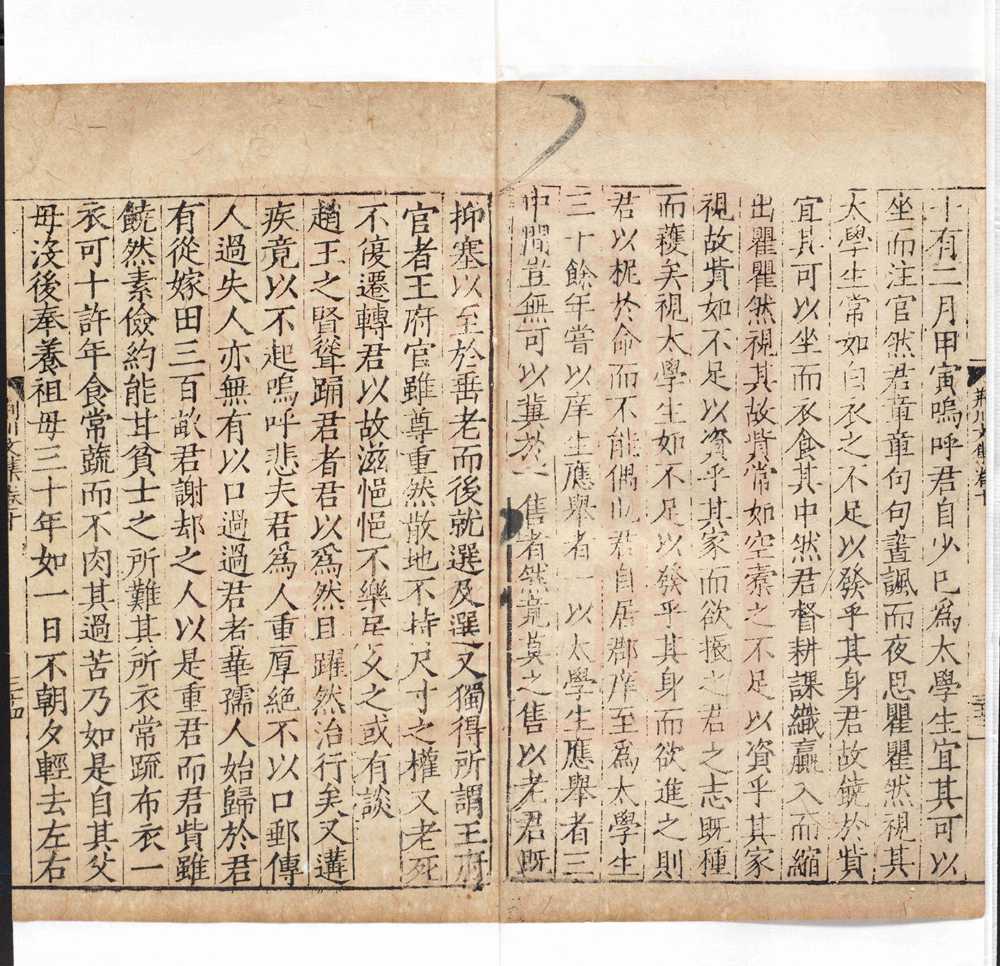 十有二月甲寅嗚呼君自少已爲太學生宜其可以
坐而注官然君章章句句晝諷而夜思瞿瞿然視其
太學生常如白衣之不足以發乎其身君故饒於貲
宜其可以坐而衣食其中然君督耕課織贏入而縮
出瞿瞿然視其故貲常如空橐之不足以資乎其家
視故貲如不足以資乎其家而欲振之君之志既種
而穫矣視太學生如不足以發乎其身而欲進之則
君以柅於命而不能偶也君自居郡庠至爲太學生
三十餘年嘗以庠生應舉者一以太學生應舉者三
中間豈無可以冀於一售者然竟莫之售以老君既
荆川文集卷十
抑塞以至於垂老而後就選及選又獨得所謂王府
官者王府官雖尊重然散地不持尺寸之權又老死
不復遷轉君以故滋悒悒不樂居久之或有談
趙王之賢聳踊君者君以爲然且躍然治行矣又遘
疾竟以不起嗚呼悲夫君爲人重厚絶不以口郵傳
人過失人亦無有以口過過君者華孺人始歸於君
有從嫁田三百畝君謝却之人以是重君而君貲雖
饒然素儉約能甘貧士之所難其所衣常疏布衣一
衣可十許年食常蔬而不肉其過苦乃如是自其父
母沒後奉養祖母三十年如一日不朝夕輕去左右
荆川文集卷十
三十四